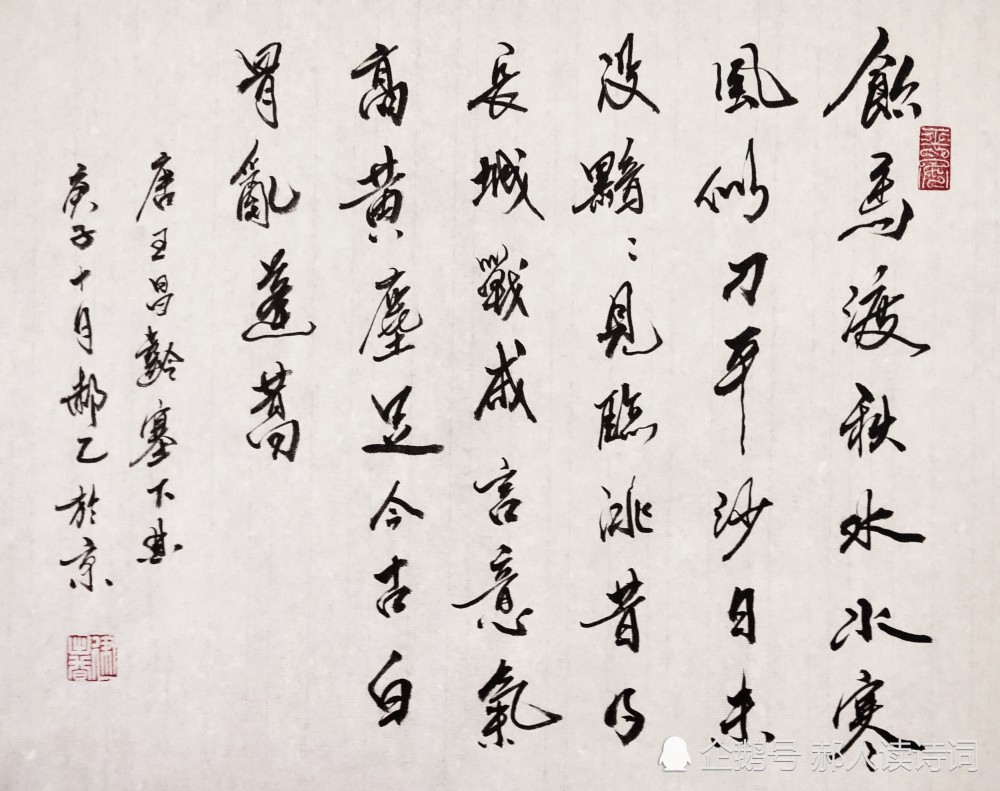 飲馬渡秋水水寒
風似刀平沙日未
没黯〻見臨洮昔日
長城戰咸言意氣
高黄塵足今古白
骨亂蓬蒿
唐王昌齡塞下曲
庚子十月郝乙於京
企鹅号 郝人读诗词